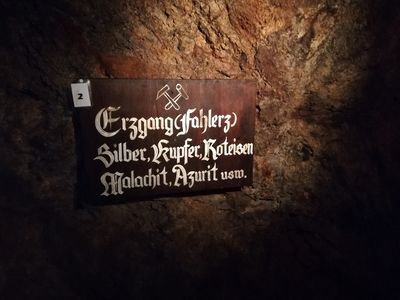 2
Erzgang (Fahlerz)
Silber, Kupfer, Roteisen
Malachit, Azurit usw.